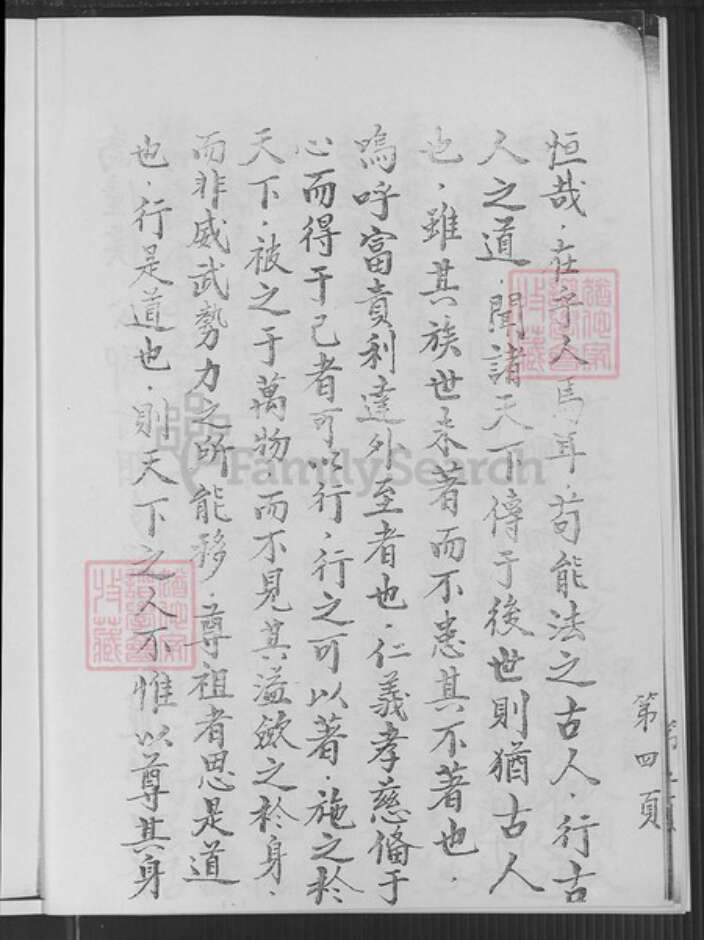 恒哉．在乎人焉耳．苟能法之古人．行古
人之道．聞諸天下傳于後世則猶古人
也．雖其族世未著而不患其不著也．
嗚呼富責利達外至者也．仁義孝慈備于
心而得于己者可以行．行之可以著．施之於
天下．被之于萬物．而不見其溢歛之於身．
而非威武勢力之所能移．尊祖者思是道
也．行是道也．則天下之人不惟以尊其身
第四頁
FamilySearch